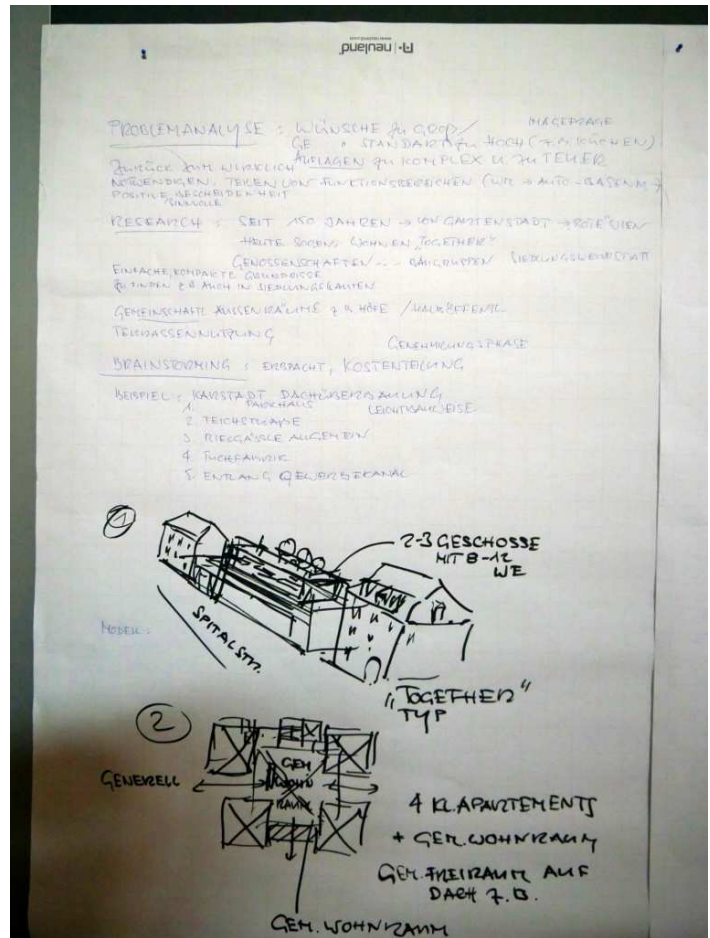 neuland
PROBLEMANALYSE : WÜNSCHE zu GROß/ IMAGEFRAGE
GE " STANDARTS zu HOCH (z.B. KÜCHEN)
AUFLAGEN zu KOMPLEX U. zu TEUER
ZURÜCK ZUM WIRKLICH
NOTWENDIGEN. TEILEN VON FUNKTIONSBEREICHEN
POSITIVE BESCHEIDENHEIT
SINNVOLLE
RESEARCH : SEIT 150 JAHREN → VON GARTENSTADT → ROTE WIEN
HEUTE WOHNEN „TOGETHER"
GENOSSENSCHAFTEN... BAUGRUPPEN SIEDLUNGSWERKSTATT
EINFACHE, KOMPAKTE GRUNDRISSE
ZU FINDEN z B AUCH IN SIEDLUNGSBAUTEN
GEMEINSCHAFTL AUSSENRÄUME z B HÖFE / HALBÖFFENTL.
TERRASSENNUTZUNG
GENEHMIGUNGSPHASE
BRAINSTORMING : ERBPACHT, KOSTENTEILUNG
BEISPIEL : KARSTADT DACHÜBERBAUUNG
1. PARKHAUS LEICHTBAUWEISE
2. TEICHSTRAßE
3. ALLGEMEIN
4. TUCHFABRIK
5. ENTLANG GEWERBEKANAL
1
2-3 GESCHOSSE
MIT 8-12
WE
MODELL :
SPITALSTR.
„TOGETHER"
TYP
2
GENERELL
GEM
WOHN
RAUM
4 KL. APARTEMENTS
+ GEM. WOHNRAUM
GEM. FREIRAUM AUF
DACH z.B.
GEM. WOHNRAUM